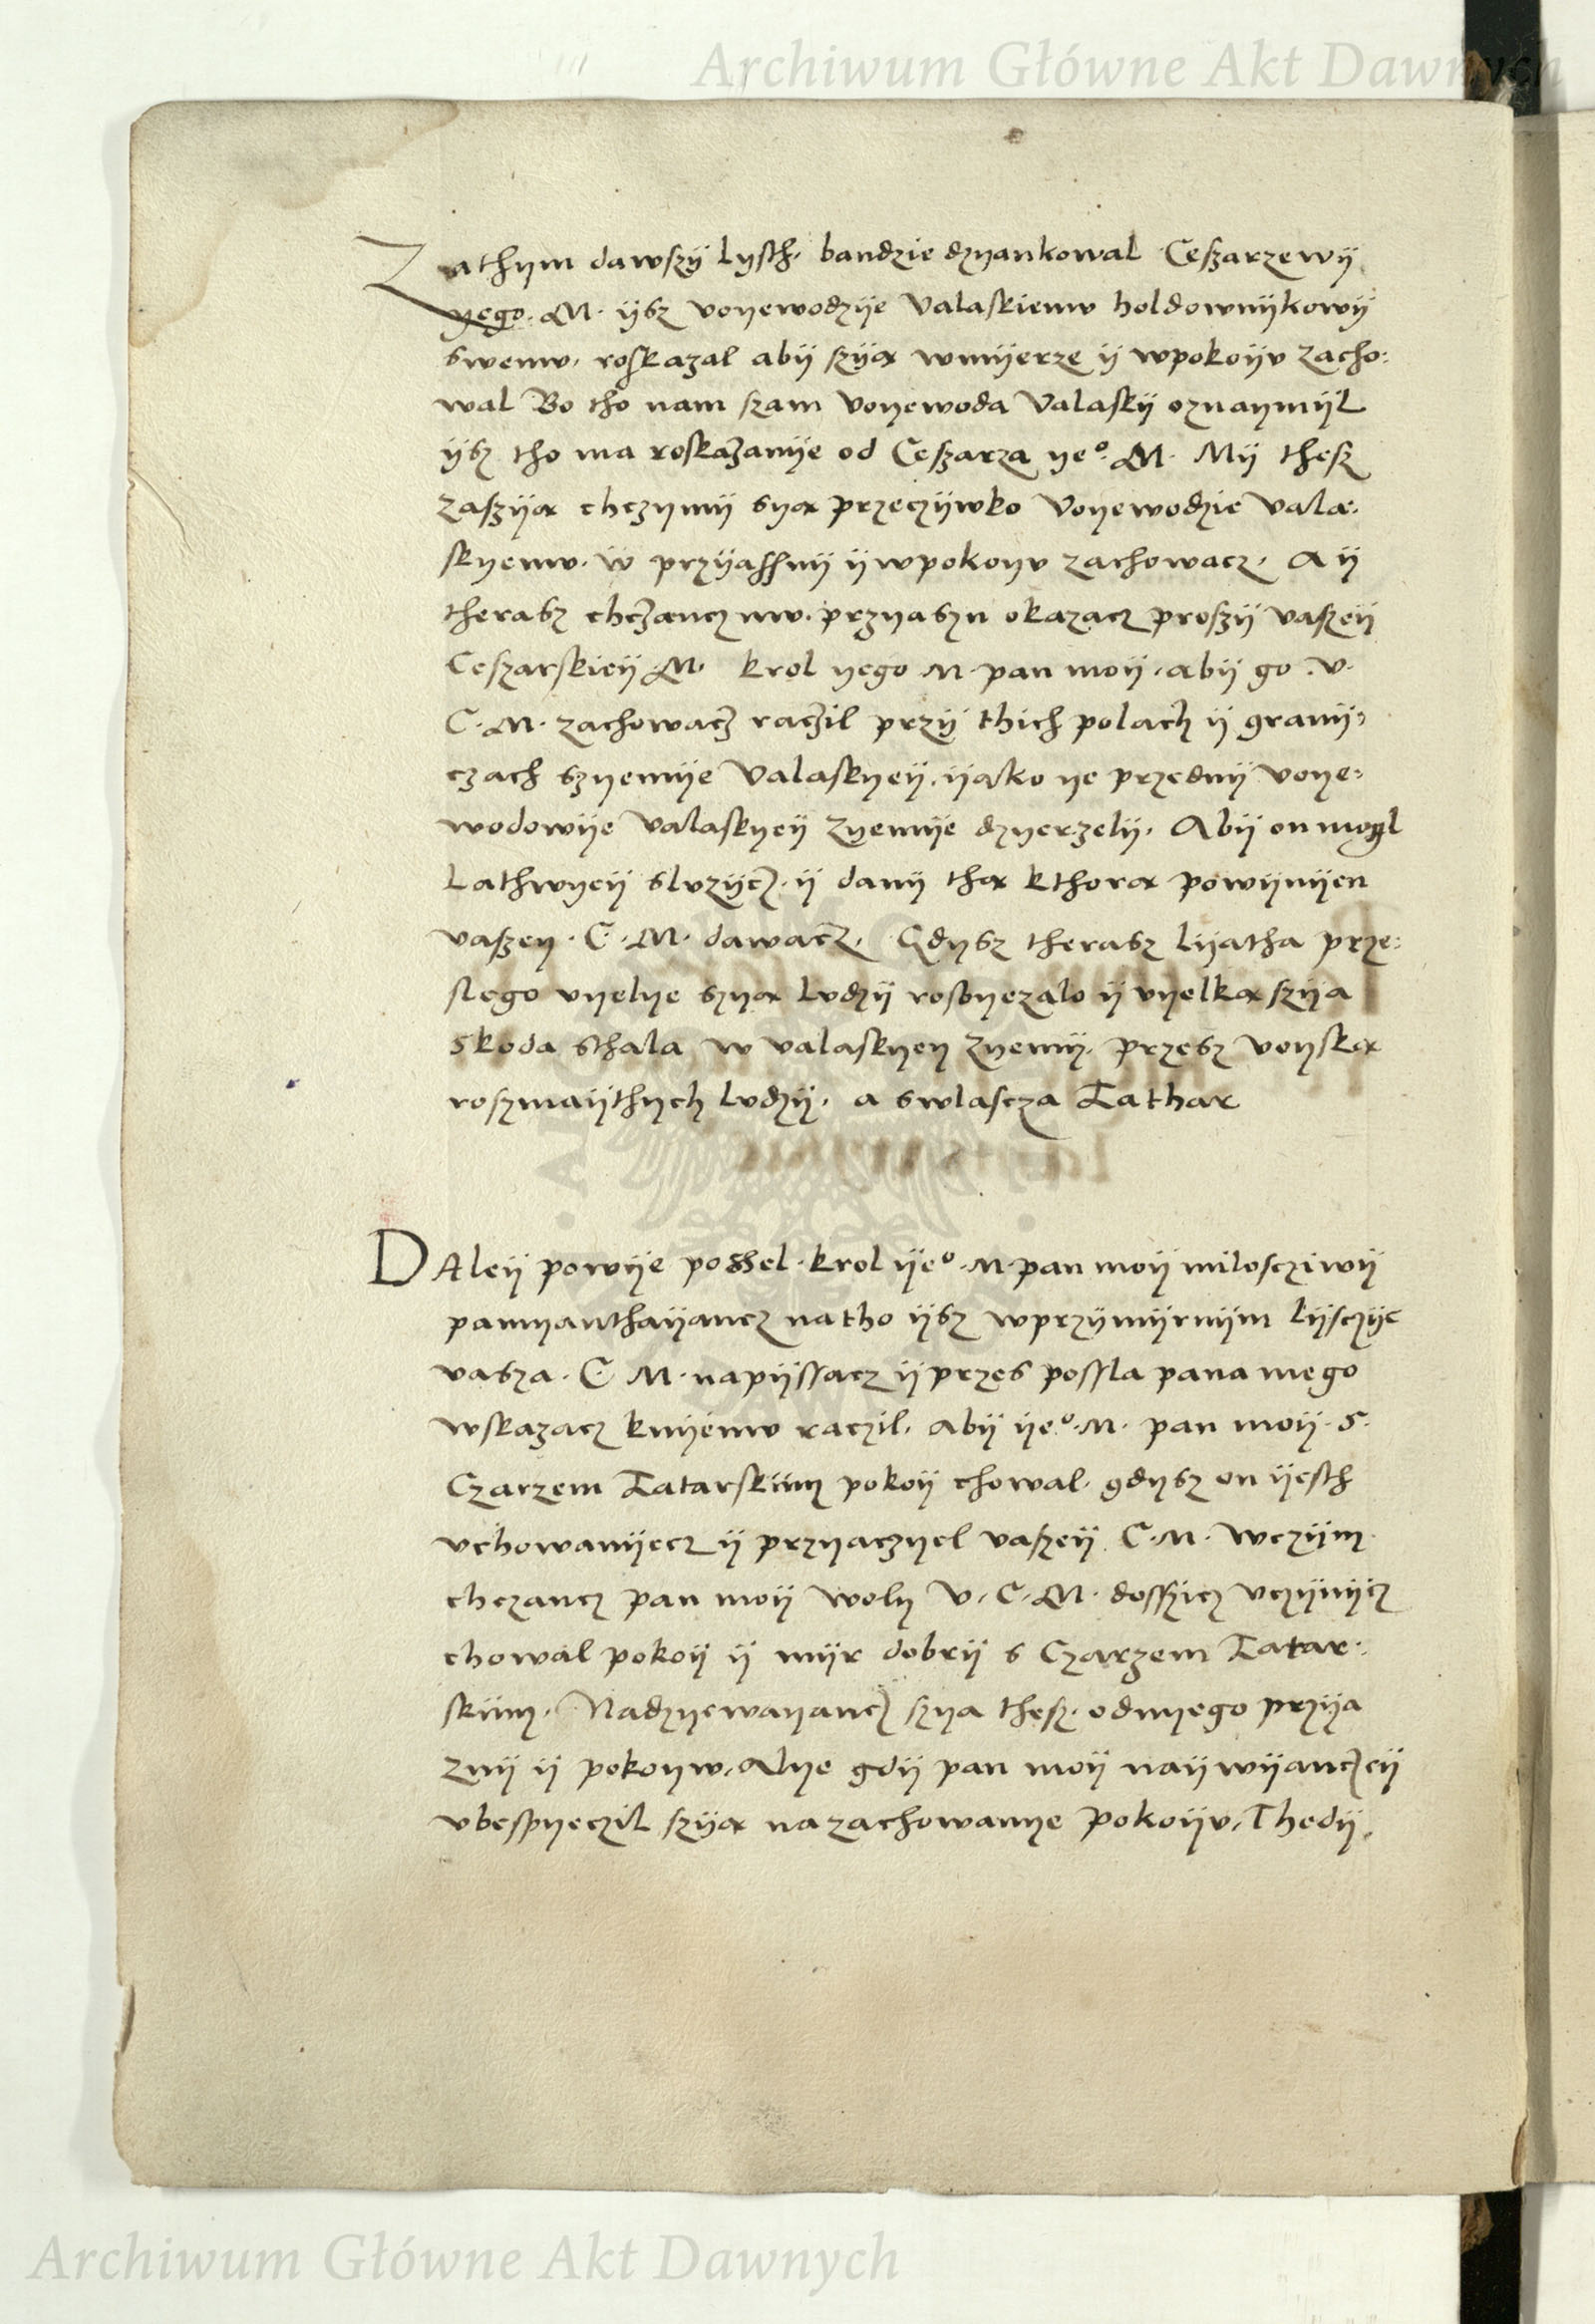 Archiwum Główne Akt Dawnych
Zathym dawszÿ lÿsth, bandzie dzyankowal Ceszarzewÿ
yego. M. ÿsz voyewodzÿe Valaskiemv holdownÿkowÿ
swemv, roskazal abÿ szÿa wmÿerze ÿ wpokoÿv zacho:
wal Bo tho nam szam voyewoda Valaskÿ oznaÿmÿl
ÿsz tho ma roskazanÿe od Ceszarza yeº. M. Mÿ thesz
zaszÿa chczymÿ sya przeczÿwko Voyewodzie Vala.
skyemv. w przÿassnÿ ÿ wpokoyv zachowacz. A ÿ
therasz chczancz mv. przyaszn okazacz proszÿ vaszeÿ
Ceszarskieÿ M. krol yego M. pan moÿ, abÿ go. v.
C. M. zachowacz raczil przÿ thich polach ÿ granÿ:
czach szyemÿe Valaskyeÿ, ÿako ye przednÿ voye:
wodowÿe Valaskyeÿ zyemÿe dzyerzelÿ. Abÿ on mogl
Lathwyeÿ slvzÿcz. ÿ danÿ tha kthora powÿnÿen
vaszey. C. M. dawacz. Gdysz therasz lÿatha prze:
slego vyelye szya lvdzÿ rosbyezalo ÿ vyelka szya
skoda sthala w valaskyey zyemÿ. przesz voyska
roszmaÿthych lvdzÿ, a swlascza Tathar
DAleÿ powÿe possel. krol ÿeº. M. pan moÿ milosciwÿ
pamyanthaÿancz na tho ÿsz wprzÿmÿrnÿm lÿsczÿe
vasza. C. M. napÿssacz ÿ przes possla pana mego
wskazacz knÿemv raczil. abÿ ÿeº. M. pan moÿ. s.
Czarzem Tatarskim pokoÿ chowal. gdysz on ÿesth
vchowanÿecz ÿ przyaczyel vaszeÿ C. M. wczÿm
chczancz pan moÿ woly V. C. M. dosszicz vczÿnÿcz
chowal pokoÿ ÿ mÿr dobrÿ s Czarzem Tatar:
skim. Nadzyewayancz szya thesz. odnyego przÿa
znÿ ÿ pokoyw. Alye gdÿ pan moÿ naÿwÿanczeÿ
vbespyeczil szÿa na zachowanye pokoÿv, Thedÿ
Archiwum Główne Akt Dawnych